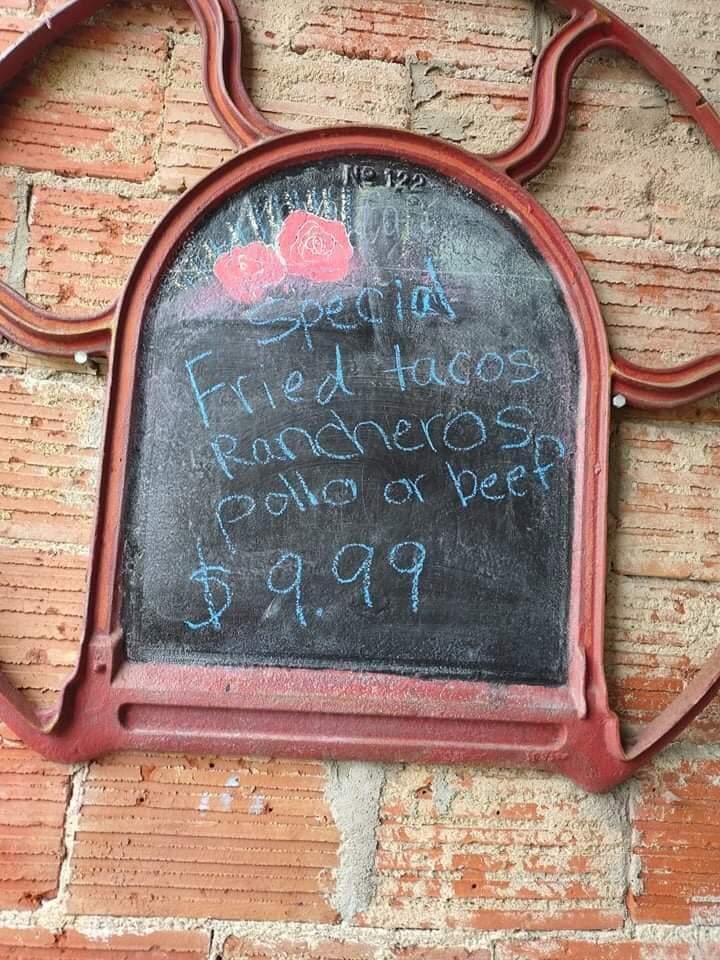 Nº 122
Special
Fried tacos
Rancheros
pollo or beef
$ 9.99